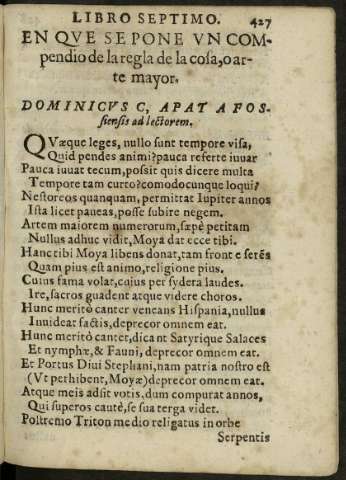 LIBRO SEPTIMO. 427
EN QVE SE PONE VN COM-
pendio de la regla de la cosa, o ar-
te mayor.
DOMINICVS C, APAT A FOS-
siensis ad lectorem.
QVæque leges, nullo sunt tempore visa,
Quid pendes animi? pauca referre iuuar
Pauca iuuat tecum, possit quis dicere multa
Tempore tam curto? comodocunque loqui?
Nestoreos quanquam, permittat Iupiter annos
Ista licet paueas, posse subire negem.
Artem maiorem numerorum, sæpè petitam
Nullus adhuc vidit, Moya dat ecce tibi.
Hanc tibi Moya libens donat, tam fronte serēs
Quam pius est animo, religione pius.
Cuius fama volat, cuius per sydera laudes.
Ire, sacros guadent atque videre choros.
Hunc meritò canter veneans Hispania, nullus
Inuideat factis, deprecor omnem eat.
Hunc meritò canter, dicant Satyrique Salaces
Et nymphæ, & Fauni, deprecor omnem eat.
Et Portus Diui Stephani, nam patria nostro est
(Vt perhibent, Moyæ) deprecor omnem eat.
Atque meis adsit votis, dum compurat annos,
Qui superos cautè, se sua terga videt.
Postremo Triton medio religatus in orbe
Serpentis